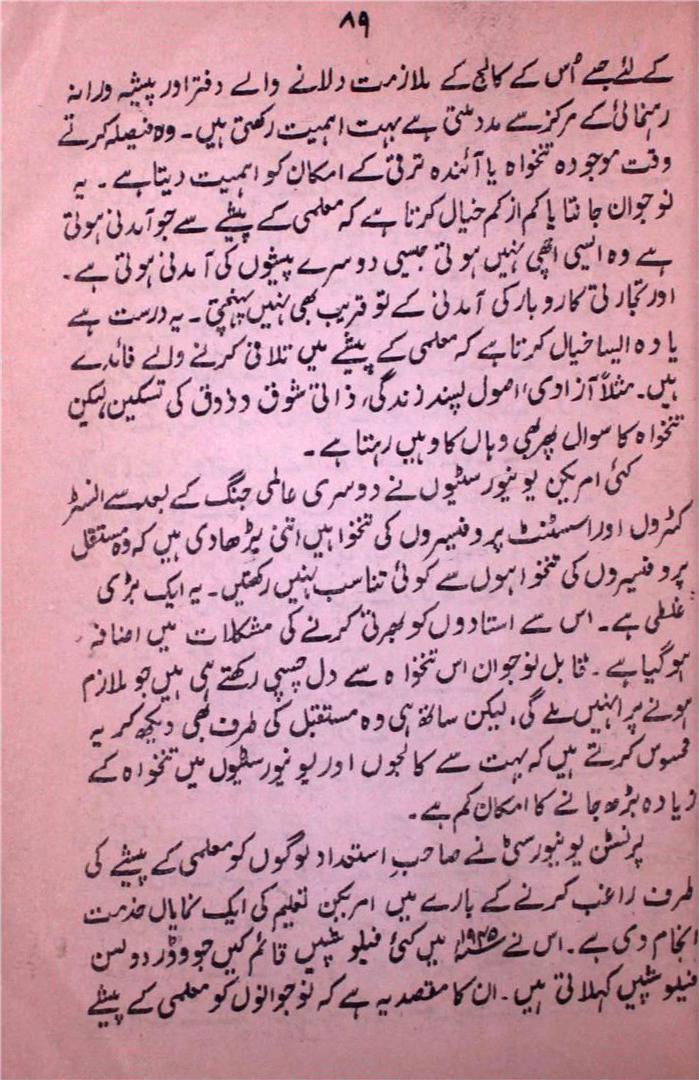 ۸۹
کے لئے جسے اُس کے کالج کے ملازمت دلانے والے دفتر اور پیشہ ورانہ
رہنمائی کے مرکز سے مدد ملتی ہے بہت اہمیت رکھتی ہیں۔ وہ فیصلہ کرتے
وقت موجودہ تنخواہ یا آئندہ ترقی کے امکان کو اہمیت دیتا ہے۔ یہ
نوجوان جانتا یا کم از کم خیال کرتا ہے کہ معلمی کے پیشے سے جو آمدنی ہوتی
ہے وہ ایسی اچھی نہیں ہوتی جیسی دوسرے پیشوں کی آمدنی ہوتی ہے۔
اور تجارتی کاروبار کی آمدنی کے تو قریب بھی نہیں پہنچتی۔ یہ درست ہے
یا وہ ایسا خیال کرتا ہے کہ معلمی کے پیشے میں تلافی کرنے والے فائدے
ہیں۔ مثلاً آزادی، اصول پسند زندگی، ذاتی شوق و ذوق کی تسکین، لیکن
تنخواہ کا سوال پھر بھی وہاں کا وہیں رہتا ہے۔
کئی امریکن یونیورسٹیوں نے دوسری عالمی جنگ کے بعد سے انسٹر
کٹروں اور اسسٹنٹ پروفیسروں کی تنخواہیں اتنی بڑھا دی ہیں کہ وہ مستقل
پروفیسروں کی تنخواہوں سے کوئی تناسب نہیں رکھتیں۔ یہ ایک بڑی
غلطی ہے۔ اس سے استادوں کو بھرتی کرنے کی مشکلات میں اضافہ
ہو گیا ہے۔ قابل نوجوان اس تنخواہ سے دل چسپی رکھتے ہی ہیں جو ملازم
ہونے پر انہیں ملے گی، لیکن ساتھ ہی وہ مستقبل کی طرف بھی دیکھ کر یہ
محسوس کرتے ہیں کہ بہت سے کالجوں اور یونیورسٹیوں میں تنخواہ کے
زیادہ بڑھ جانے کا امکان کم ہے۔
پرنسٹن یونیورسٹی نے صاحبِ استعداد لوگوں کو معلمی کے پیشے کی
طرف راغب کرنے کے بارے میں امریکن تعلیم کی ایک نمایاں خدمت
انجام دی ہے۔ اس نے ۱۹۴۵ء میں کئی فیلوشپیں قائم کیں جو وڈرو ولسن
فیلوشپیں کہلاتی ہیں۔ ان کا مقصد یہ ہے کہ نوجوانوں کو معلمی کے پیشے